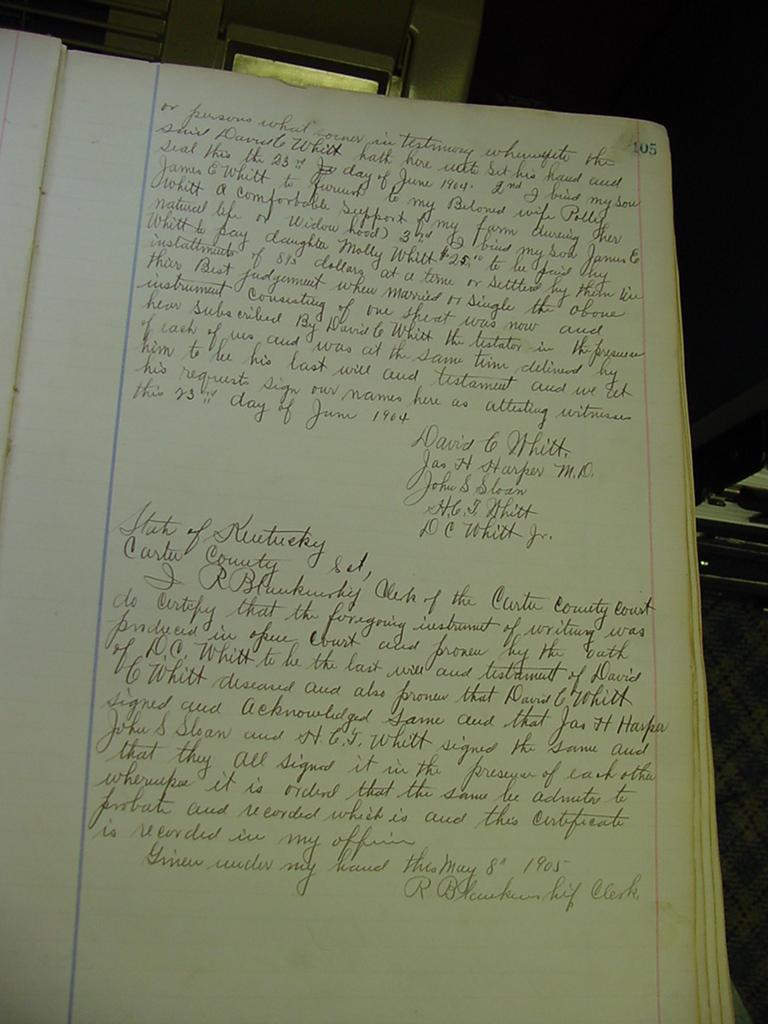 105
or persons what corner in testimony whereupite the
said David C Whitt hath here unto set his hand and
seal this the 23rd day of June 1904. 2nd I bind my son
James E Whitt to furnish to my Beloved wife Polley
Whitt a comfortable support of my farm dureing her
natural life or Widow hood) 3rd I bind my son James E
Whitt to pay daughter Molly Whitt $25.00 to be paid by
installments of dollars at a time or settled by them in
thier Best judgement when married or single the above
instrument consisting of one sheat was now and
hear subscribed By David C Whitt the testator in the presence
of each of us and was at the same time delivered by
him to be his last will and testament and we at
his request sign our names here as attesting witnesses
this 23rd day of June 1904
David C Whitt.
Jas H Harper M.D.
John S Sloan
H.C.F. Whitt
D C Whitt Jr.
State of Kentucky
Carter County Sct,
I R Blankinship Clerk of the Carter County court
do certify that the foregoing instrument of writing was
produced in open court and proven by the oath
of D.C. Whitt to be the last will and testament of David
C Whitt deseased and also proven that David C Whitt
signed and acknowledged same and that Jas H Harper
John S Sloan and H.C.F. Whitt signed the same and
that they all signed it in the presence of each other
whereupon it is ordered that the same be admited to
probate and recorded which is and this certificate
is recorded in my office
Given under my hand this May 8" 1905
R Blankinship Clerk.